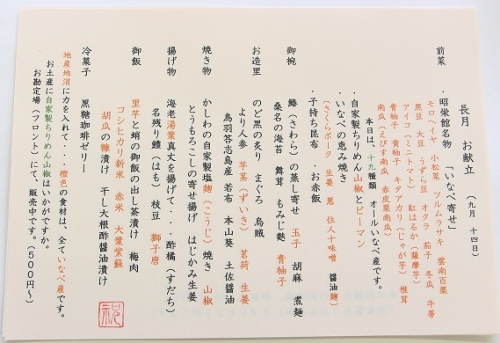 長月　お献立　（九月　十四日）
前菜　・昭栄館名物　「いなべ寄せ」
モロヘイヤ　小松菜　ツルムラサキ　雲南百薬
黒豆　大豆　うずら豆　オクラ　茄子　冬瓜　牛蒡
アイコ（ミニトマト）　紅はるか（薩摩芋）
青柚子　黄柚子　キタアカリ（じゃが芋）　椎茸
南瓜（えびす南瓜）　赤皮栗南瓜）
本日は、十九種類　オールいなべ産です。
・自家製ちりめん山椒とピーマン
・いなべの恵み焼き
（さくらポーク　生姜　葱　住人十味噌　醤油麹）
・子持ち昆布　・お赤飯
御椀　鰆（さわら）の蒸し寄せ　玉子　胡麻　煮麺
桑名の海苔　舞茸　もみじ麩　青柚子
お造里　のど黒の炙り　まぐろ　烏賊
より人参　芋茎（ずいき）　茗荷　生姜
鳥羽答志島産　若布　本山葵　土佐醤油
焼き物　かしわの自家製塩麹（こうじ）焼き　山椒
とうもろこしの寄せ揚げ　はじかみ生姜
揚げ物　海老湯葉真丈を揚げて・・・酢橘（すだち）
名残り鱧（はも）　枝豆　獅子唐
御飯　里芋と蛸の御飯の出し茶漬け　梅肉
コシヒカリ新米　赤米　大葉紫蘇
胡瓜の糠漬け　干し大根酢醤油漬け
冷菓子　黒糖珈琲ゼリー
地産地消に力を入れて・・・橙色の食材は、全ていなべ産です。
お土産に自家製ちりめん山椒はいかがですか。
お勘定場（フロント）にて、販売中です。（５００円～）
祝